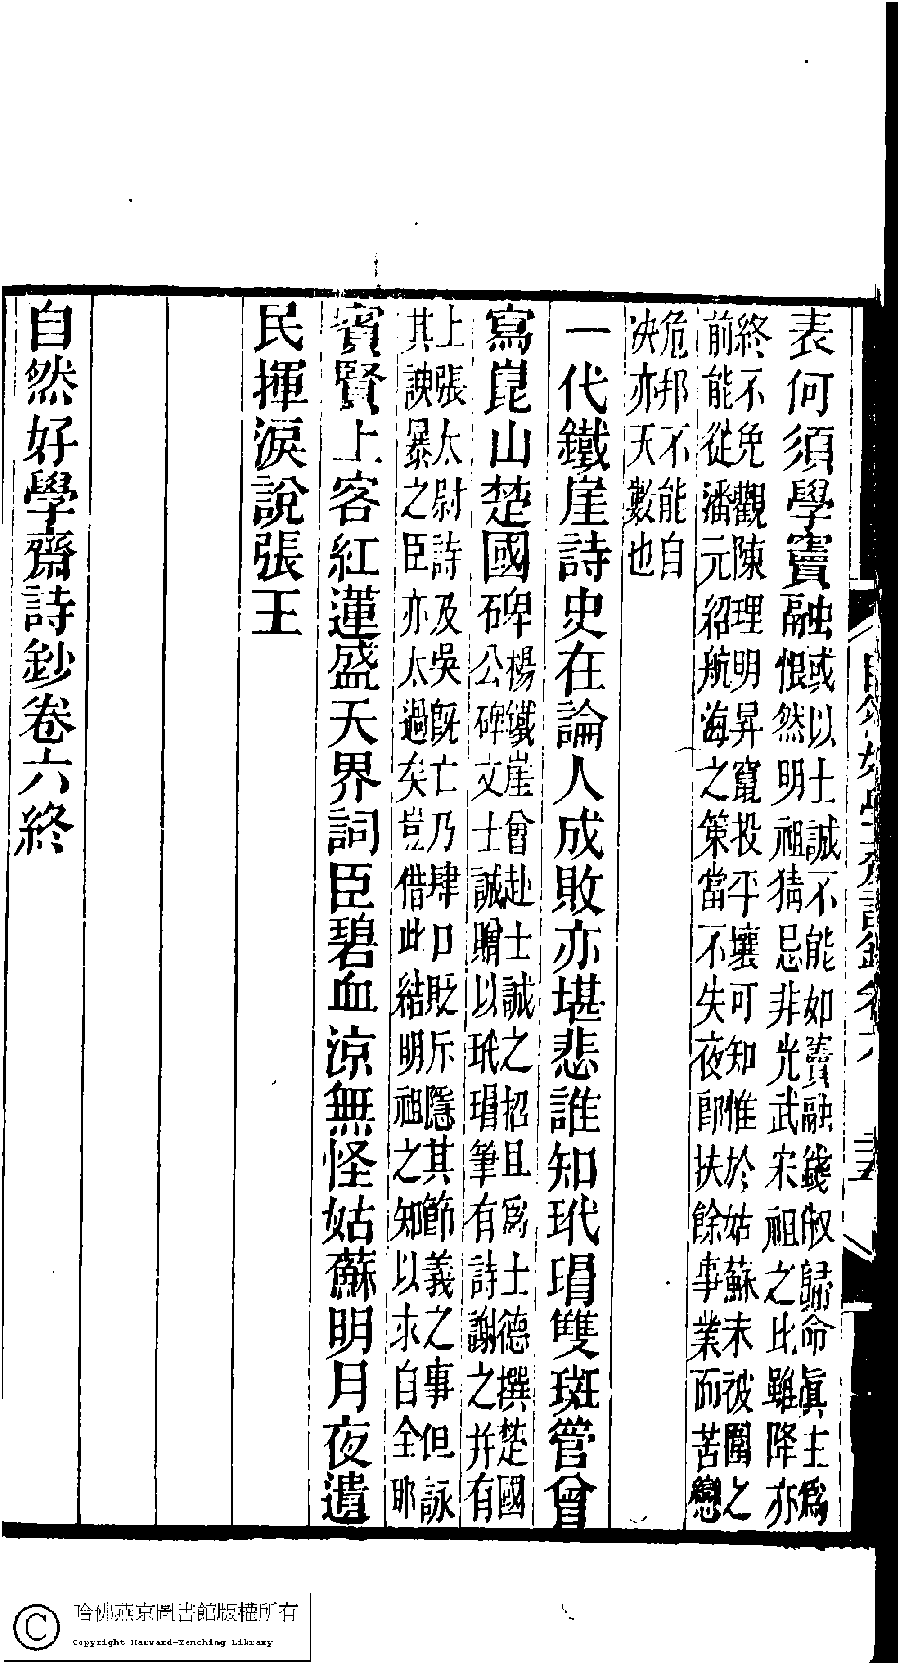 表何須學竇融
或以士誠不能如竇融錢俶歸命眞主爲
恨然明祖猜忌非光武宋祖之比雖降亦
終不免觀陳理明昇竄投平壤可知惟於姑蘇未被圍之
前能從潘元紹航海之策當不失夜郎扶餘事業而苦戀
危邦不能自
決亦天數也
一代鐵崖詩史在論人成敗亦堪悲誰知玳瑁雙斑管曾
寫崑山楚國碑
楊鐵崖曾赴士誠之招且爲士德撰楚國
公碑文士誠贈以玳瑁筆有詩謝之并有
上張太尉詩及吳旣亡乃肆口貶斥隱其節義之事但詠
其諛暴之臣亦太過矣豈借此結明祖之知以求自全耶
賓賢上客紅蓮盛天界詞臣碧血涼無怪姑蘇明月夜遺
民揮淚說張王
自然好學齋詩鈔卷六終
哈佛燕京圖書館版權所有
Copyright Harvard-Yenching Library